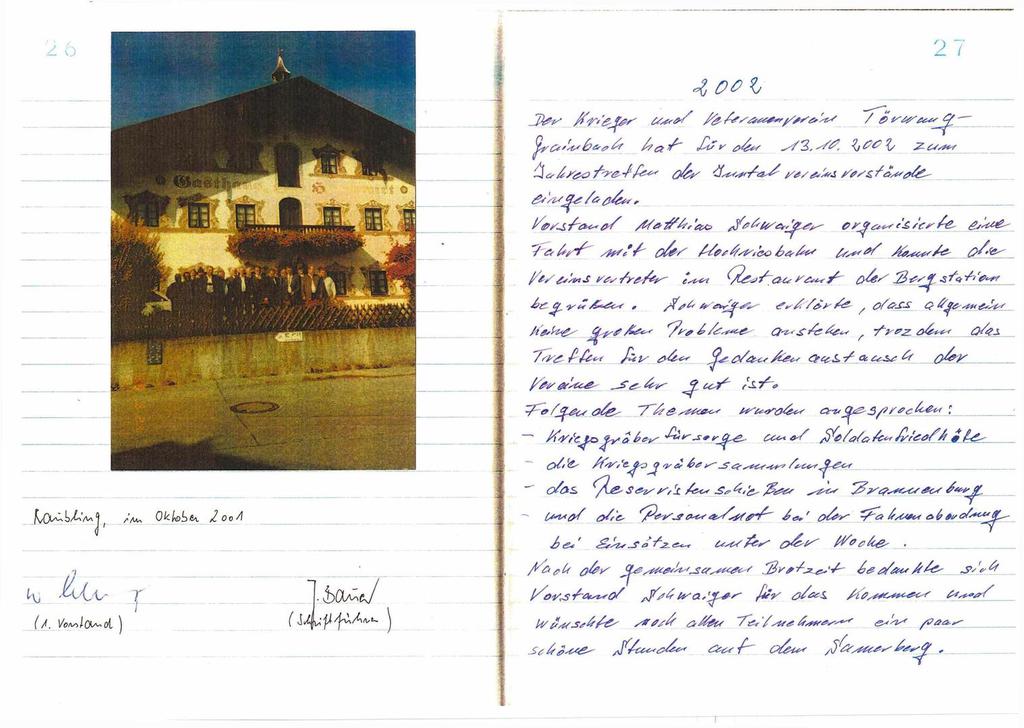 26
Gasthaus
Raubling, im Oktober 2001
J. Bauer
(1. Vorstand)
(Schriftführer)
27
2002
Der Krieger und Veteranenverein Törwang-
Grainbach hat für den 13.10.2002 zum
Jahrestreffen der Inntalvereinsvorstände
eingeladen.
Vorstand Matthias Schwaiger organisierte eine
Fahrt mit der Hochriesbahn und konnte die
Vereinsvertreter im Restaurant der Bergstation
begrüßen. Schwaiger erklärte, dass allgemein
keine großen Probleme anstehen, trozdem das
Treffen für den Gedankenaustausch der
Vereine sehr gut ist.
Folgende Themen wurden angesprochen:
- Kriegsgräberfürsorge und Soldatenfriedhöfe
- die Kriegsgräbersammlungen
- das Reservistenschießen in Brannenburg
- und die Personalnot bei der Fahnenabordnung
bei Einsätzen unter der Woche.
Nach der gemeinsamen Brotzeit bedankte sich
Vorstand Schwaiger für das Kommen und
wünschte noch allen Teilnehmern ein paar
schöne Stunden auf dem Samerberg.